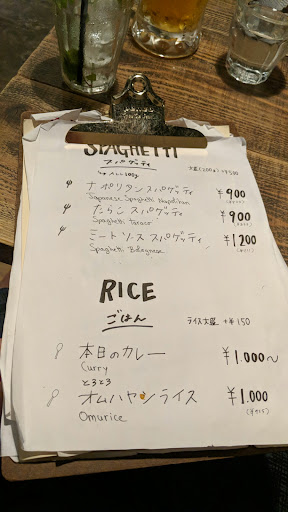 SPAGHETTI
スパゲッティ
大盛(200g) +¥300
ナポリタンスパゲッティ ¥900
Japanese Spaghetti Napolitan
たらこスパゲッティ ¥900
Spaghetti Taraco
ミートソーススパゲッティ ¥1200
Spaghetti Bolognese
RICE
ごはん
ライス大盛 +¥150
本日のカレー ¥1.000〜
Curry
とろとろ
オムハヤシライス ¥1.000
Omurice